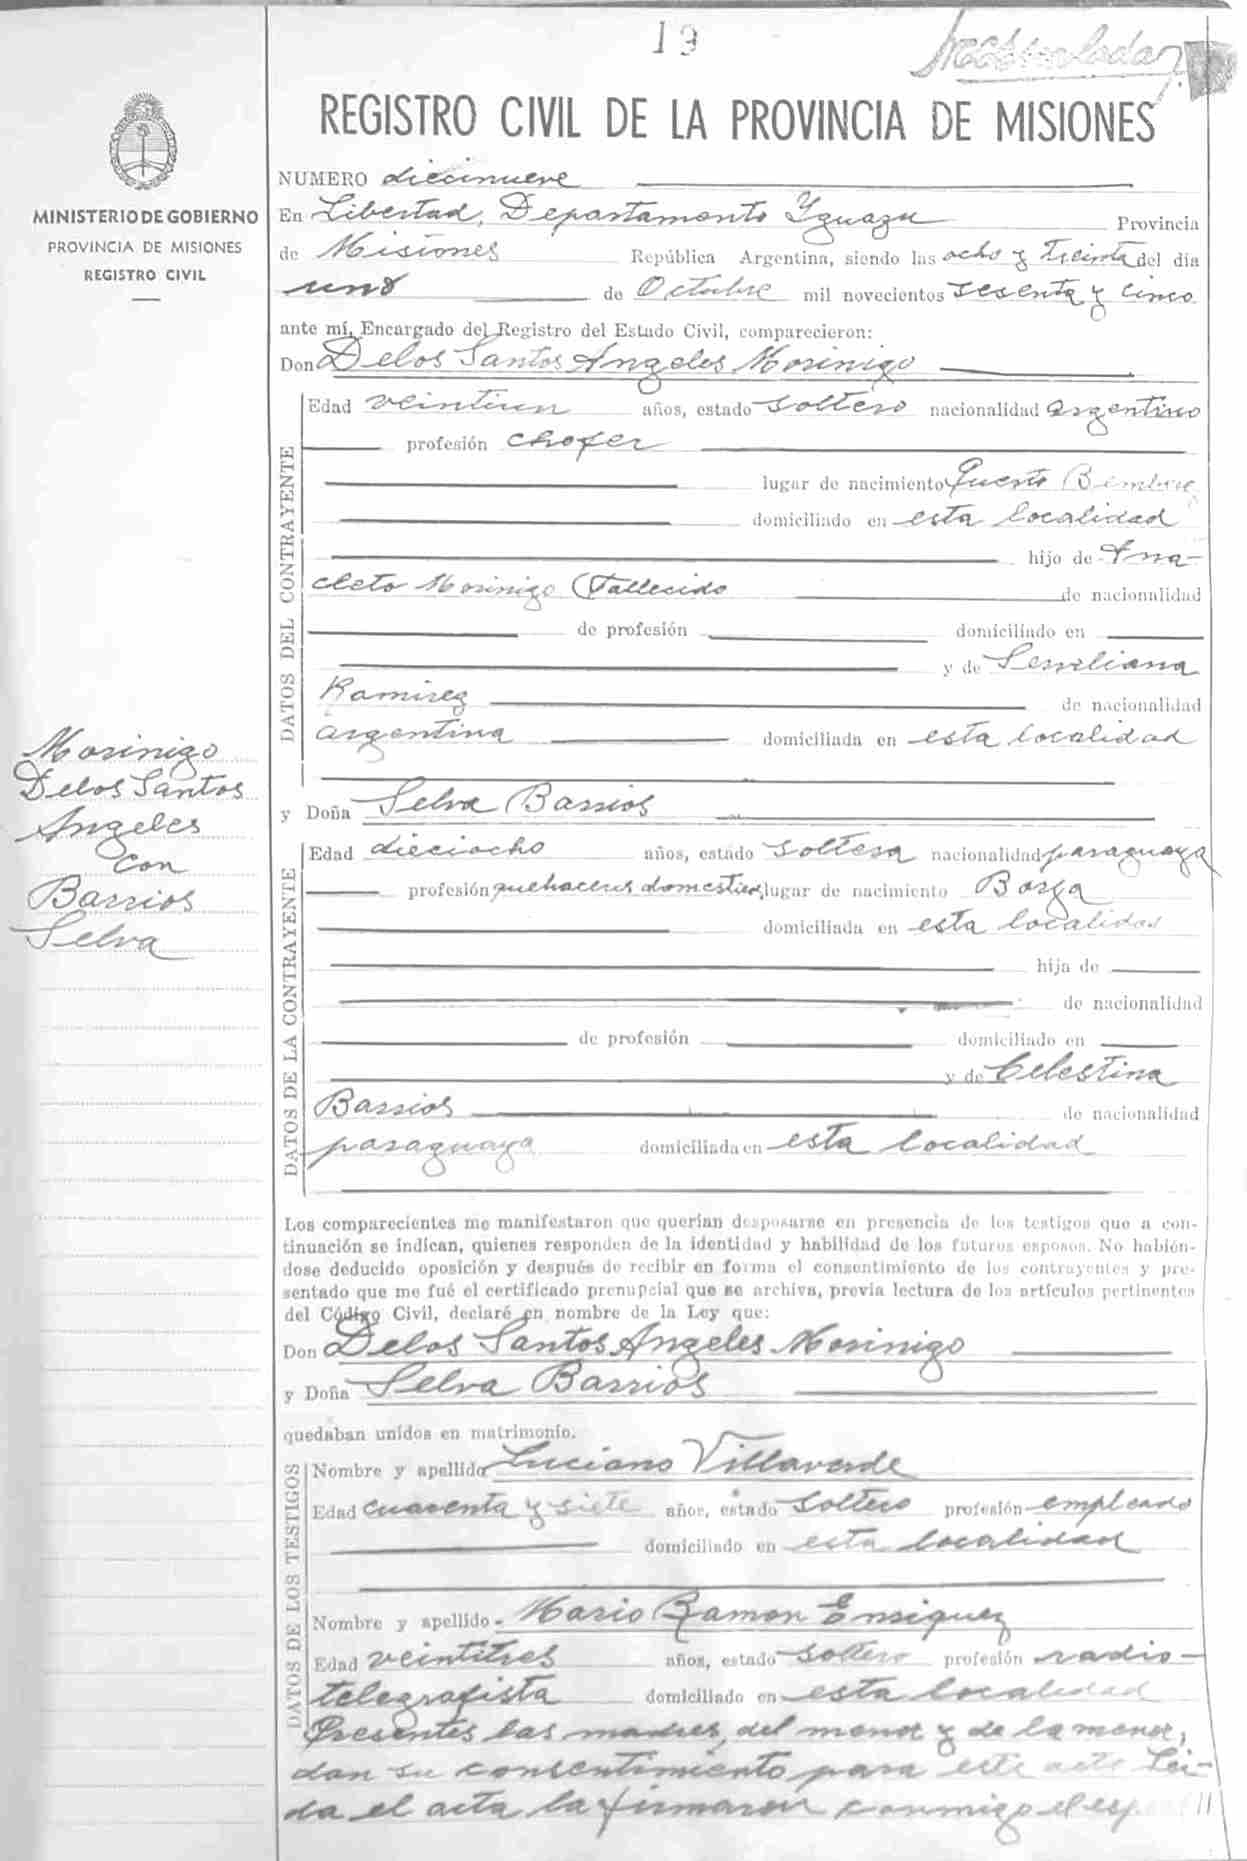 19
REGISTRO CIVIL DE LA PROVINCIA DE MISIONES
MINISTERIO DE GOBIERNO
PROVINCIA DE MISIONES
REGISTRO CIVIL
NUMERO diecinueve
En Libertad, Departamento Yguazu Provincia
de Misiones República Argentina, siendo las ocho y treinta del día
uno de Octubre mil novecientos sesenta y cinco
ante mí, Encargado del Registro del Estado Civil, comparecieron:
Don Delos Santos Angeles Morinigo
DATOS DEL CONTRAYENTE
Edad veintiun años, estado soltero nacionalidad argentino
profesión chofer
lugar de nacimiento Puerto
domiciliado en esta localidad
hijo de Ana-
cleto Morinigo (Fallecido de nacionalidad
de profesión domiciliado en
y de
Ramirez de nacionalidad
argentina domiciliada en esta localidad
Morinigo
Delos Santos
Angeles
con
Barrios
Selva
y Doña Selva Barrios
DATOS DE LA CONTRAYENTE
Edad dieciocho años, estado soltera nacionalidad paraguaya
profesión quehaceres domesticos lugar de nacimiento Borja
domiciliada en esta localidad
hija de
de nacionalidad
de profesión domiciliado en
y de Celestina
Barrios de nacionalidad
paraguaya domiciliada en esta localidad
Los comparecientes me manifestaron que querían desposarse en presencia de los testigos que a con-
tinuación se indican, quienes responden de la identidad y habilidad de los futuros esposos. No habién-
dose deducido oposición y después de recibir en forma el consentimiento de los contrayentes y pre-
sentado que me fué el certificado prenupcial que se archiva, previa lectura de los artículos pertinentes
del Código Civil, declaré en nombre de la Ley que:
Don Delos Santos Angeles Morinigo
y Doña Selva Barrios
quedaban unidos en matrimonio.
DATOS DE LOS TESTIGOS
Nombre y apellido Luciano Villaverde
Edad cuarenta y siete años, estado soltero profesión empleado
domiciliado en esta localidad
Nombre y apellido Mario Ramon Enriquez
Edad veintitres años, estado soltero profesión radio-
telegrafista domiciliado en esta localidad
Presentes las madres, del menor y de la menor,
dan su consentimiento para este acto Lei-
da el acta la firmaron conmigo el